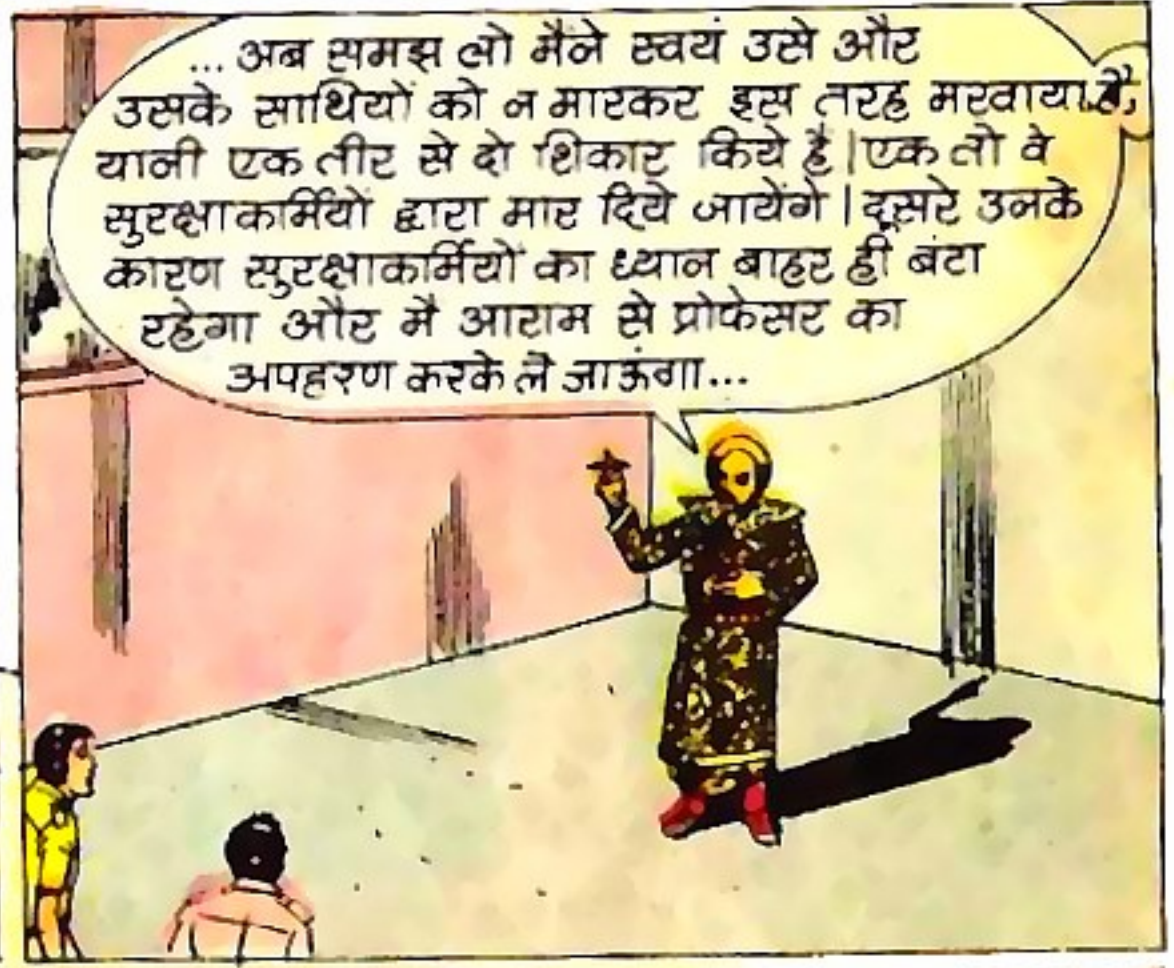 ...अब समझ लो मैंने स्वयं उसे और
उसके साथियों को न मारकर इस तरह मरवाया है,
यानी एक तीर से दो शिकार किये है|एक तो वे
सुरक्षाकर्मियों द्वारा मार दिये जायेंगे|दूसरे उनके
कारण सुरक्षाकर्मियों का ध्यान बाहर ही बंटा
रहेगा और मै आराम से प्रोफेसर का
अपहरण करके ले जाऊंगा...